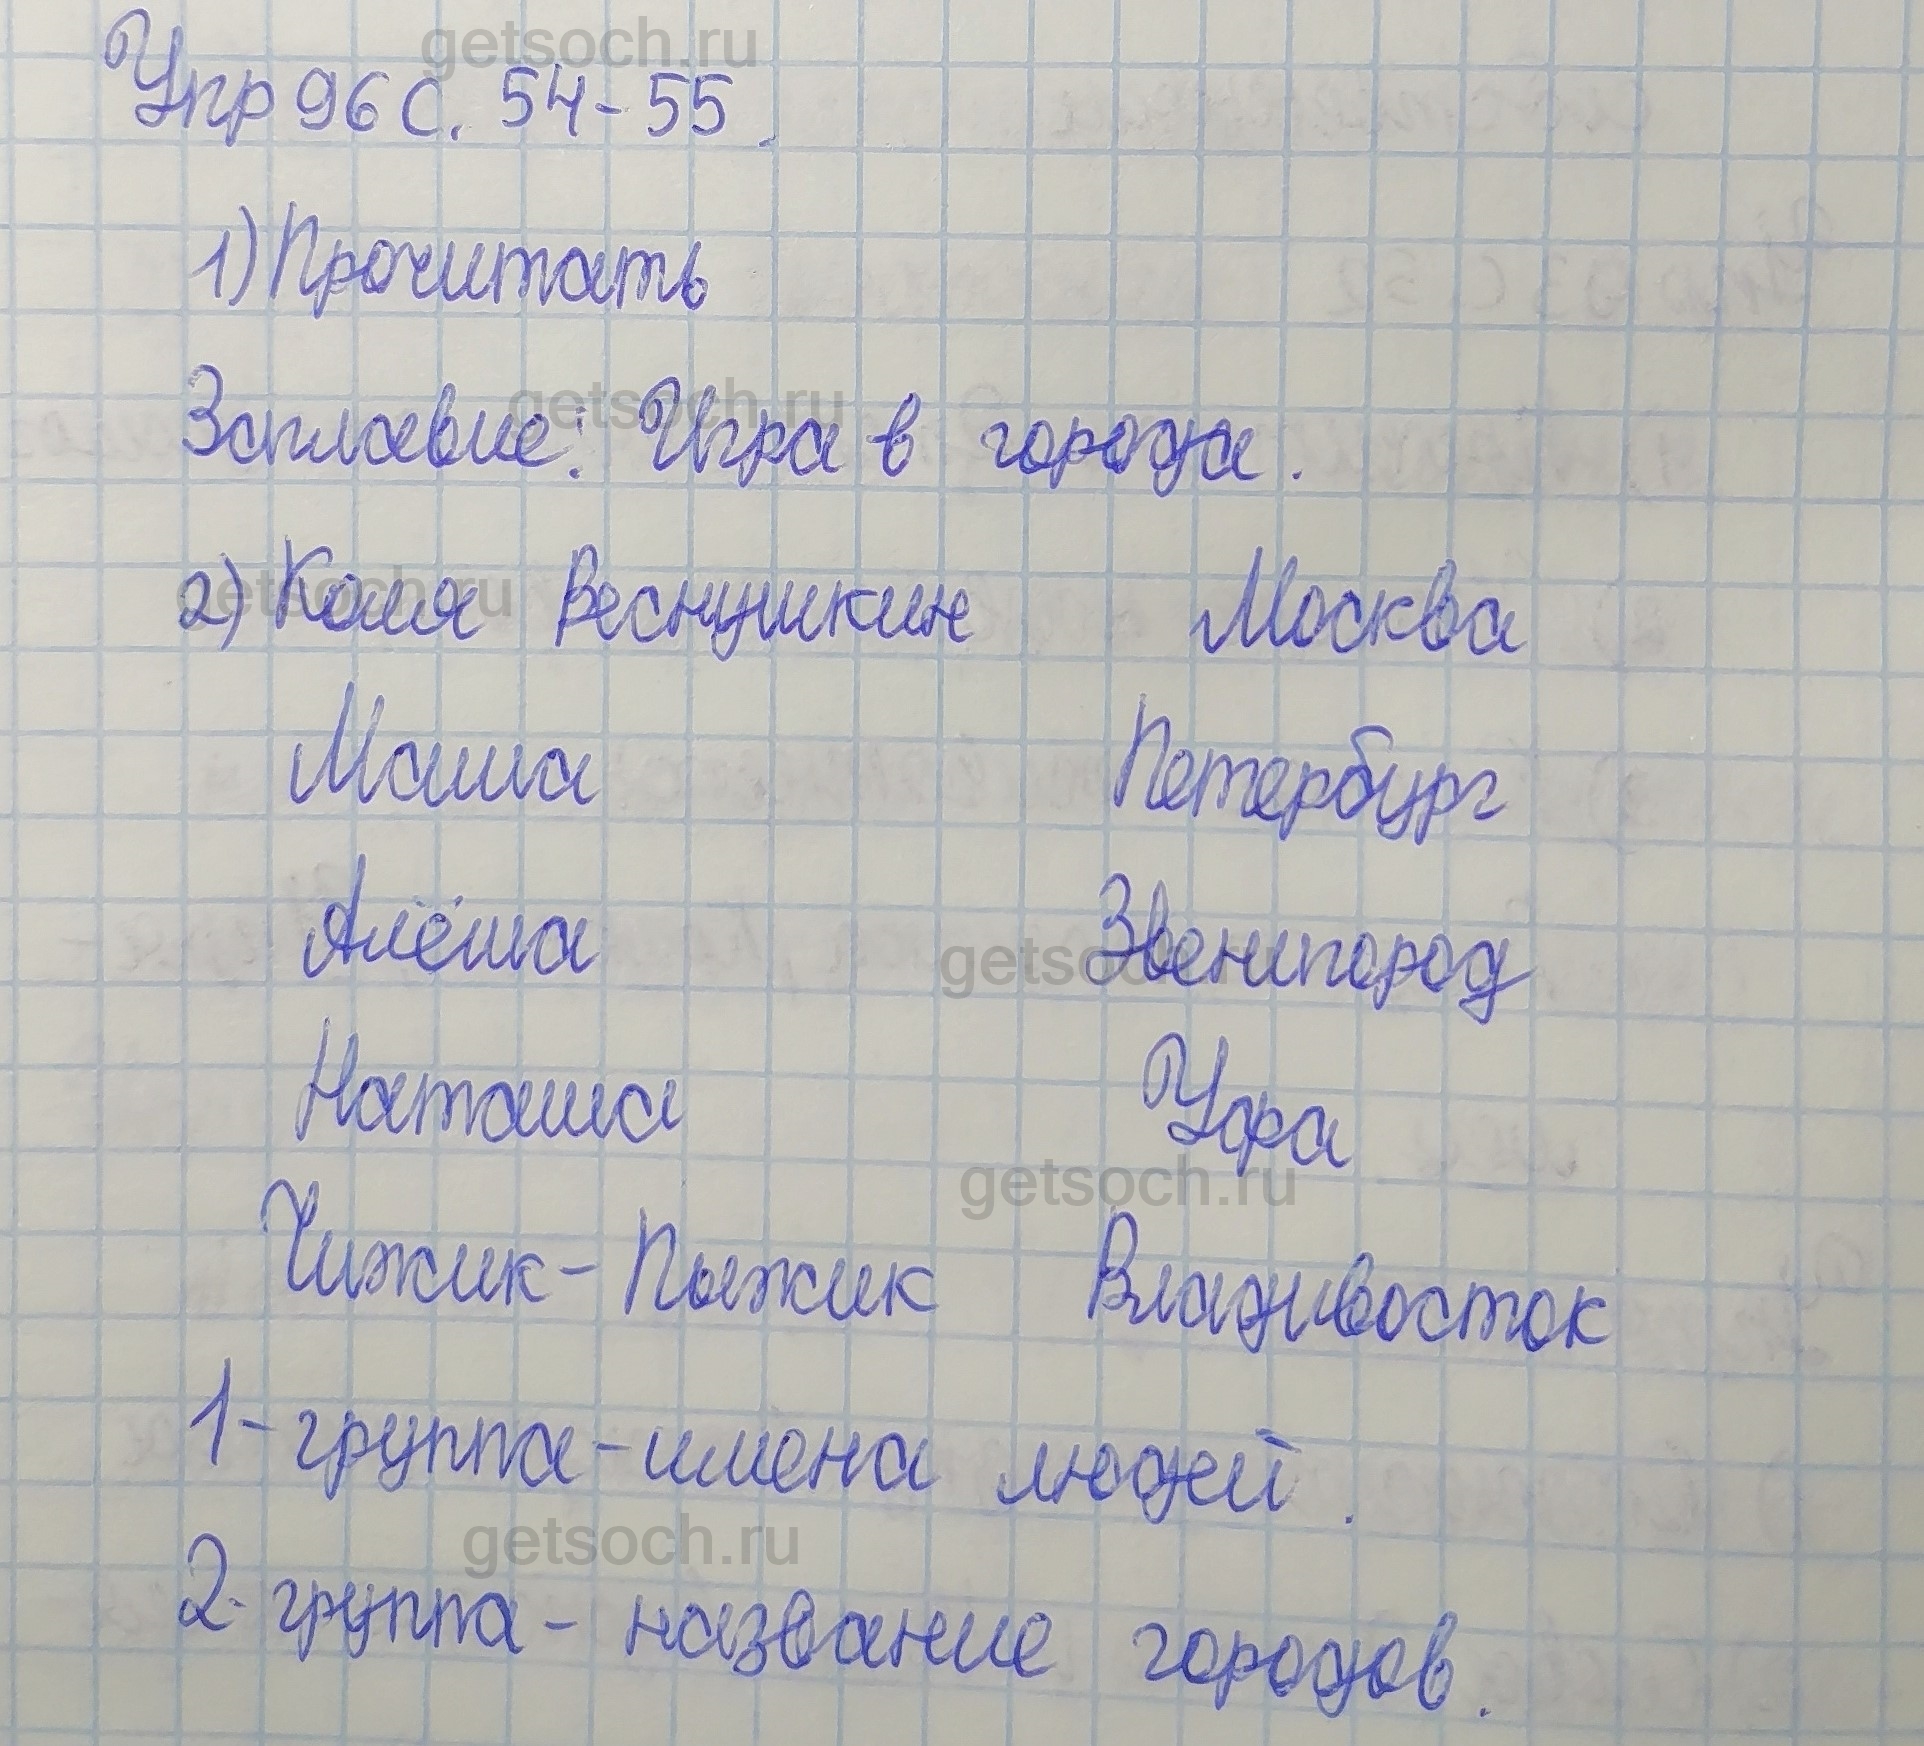 getsoch.ru
Упр 96 С. 54-55.
1) Прочитать
getsoch.ru
Заглавие: Игра в города.
getsoch.ru
2) Коля Веснушкин Москва
Маша Петербург
Алёша Звенигород
getsoch.ru
Наташа Уфа
getsoch.ru
Чижик-Пыжик Владивосток
1-группа-имена людей.
getsoch.ru
2-группа- название городов.